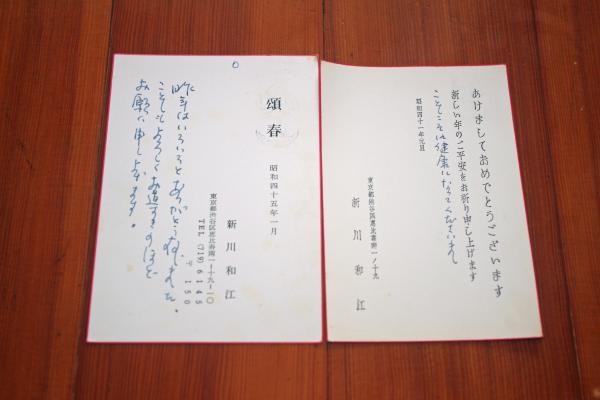 頌春
昭和四十五年一月
東京都渋谷区恵比寿南一ー十九ー一〇
新川和江
TEL (719) 6145
〒150
昨年はいろいろとありがとうございました。
ことしもよろしくお導きのほど
お願い申し上げます。
あけましておめでとうございます
新しい年のご平安をお祈り申し上げます
ことしこそは健康になってくださいませ
昭和四十一年元旦
東京都渋谷区恵比寿南一ノ十九
新川和江